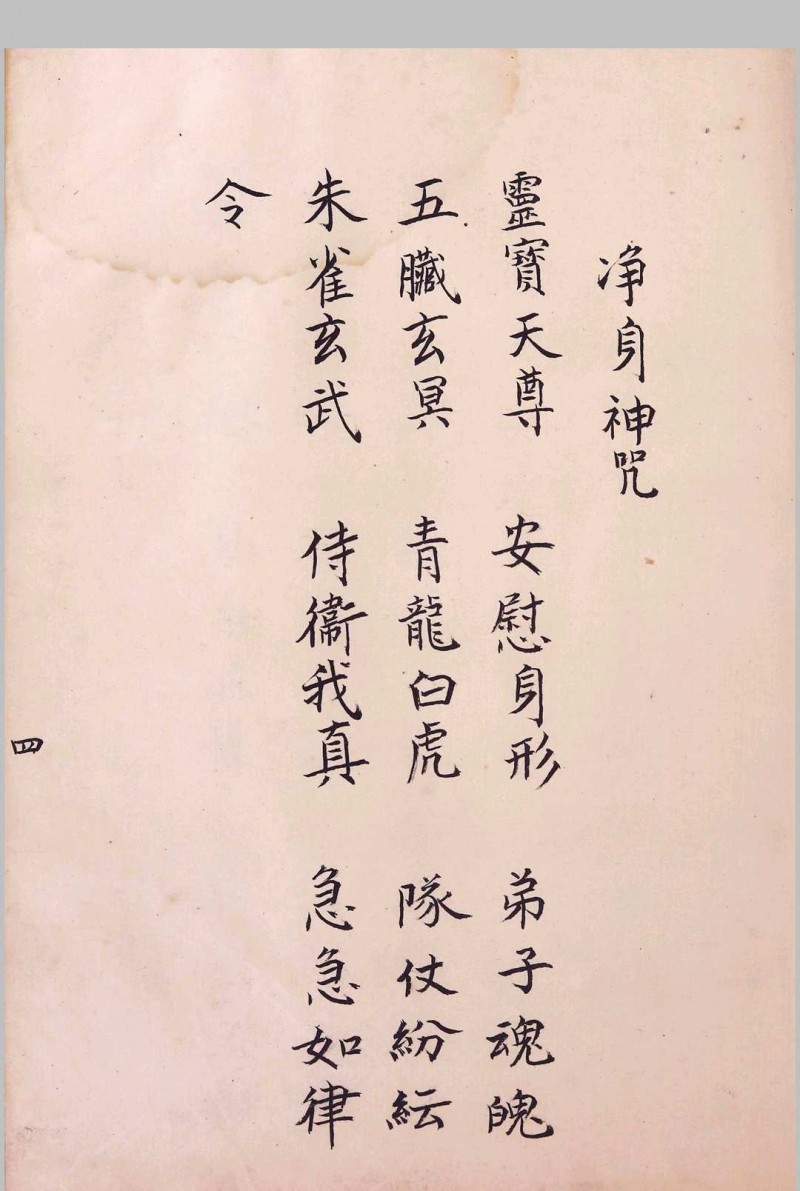 净身神咒
靈寶天尊 安慰身形 弟子魂魄
五臟玄冥 青龍白虎 隊仗紛紜
朱雀玄武 侍衞我真 急急如律
令
四